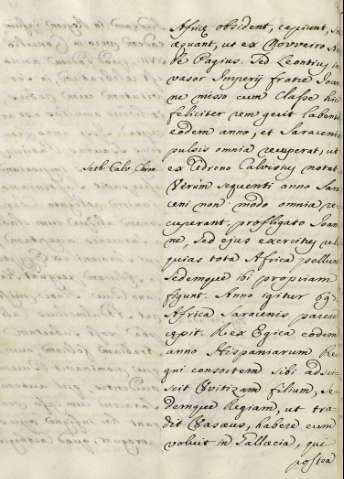 Africæ obsident, capiunt,
æquant, ut ex Novveiro
de Pagius. Sed Leontius in
vasor Imperij fratre Joan
ne misso cum Classe hic
feliciter rem gerit labente
eodem anno, et Saracenis
pulsis omnia recuperat, ut
ex Cedreno Calvisius notat
Seth. Calv. Chron.
Verum sequenti anno Sara
ceni non modo omnia re
cuperant, profligato Joan
ne, sed ejus exercitus reli
quias tota Africa pellunt
Sedemque ibi propriam
figunt. Anno igitur 69
Africa Saracenis parere
cœpit. Rex Egica eodem
anno Hispaniarum Re
gni consortem sibi adsci
scit Vvitizam filium, se
demque Regiam, ut tra
dit Vasæus, habere eum
voluit in Gallæcia, qui
postea